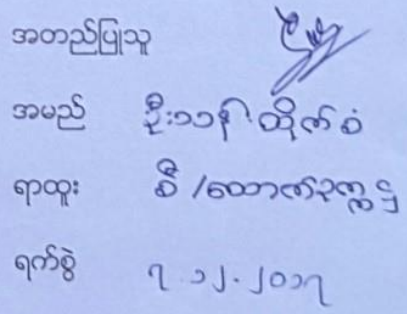 အတည်ပြုသူ
အမည် ဦး ထိုက်စံ
ရာထူး စီ /ထောက်ဥက္ကဋ္ဌ
ရက်စွဲ ၇.၁၂.၂၀၁၇